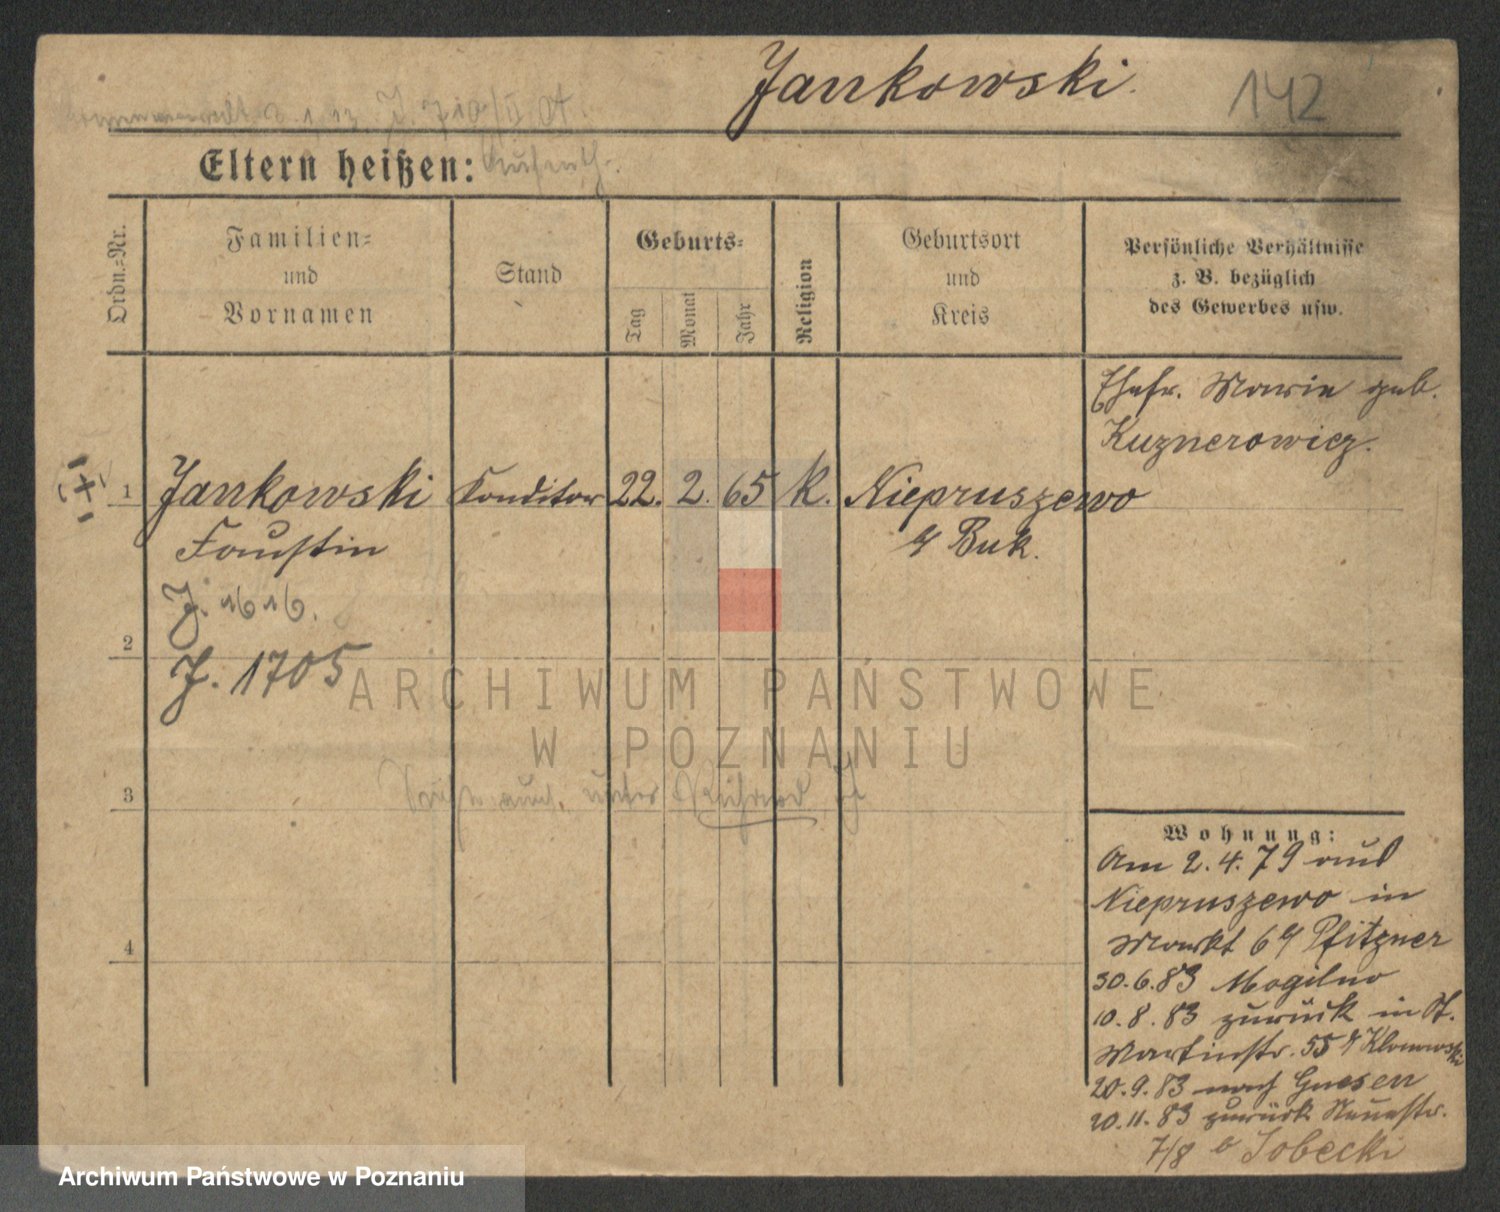 Jankowski.
142
Eltern heißen:
Ordn.=Nr.
Familien=
und
Vornamen
Stand
Geburts=
Tag
Monat
Jahr
Religion
Geburtsort
und
Kreis
Persönliche Verhältnisse
z. B. bezüglich
des Gewerbes usw.
Ehefr. Maria geb.
Kuznerowicz.
1 Jankowski Konditor 22. 2. 65 k. Niepruszewo
Faustin
Buk.
J. 1616.
2
J. 1705
ARCHIWUM PAŃSTWOWE
W POZNANIU
auch unter
3
Wohnung:
Am 2.4.79 aus
Niepruszewo in
Markt 6 Pfitzner
4
30.6.83 Mogilno
10.8.83 zurück in St.
Martinstr. 55
20.9.83 nach Gnesen
20.11.83 zurück Neuestr.
7/8 b Sobecki
Archiwum Państwowe w Poznaniu